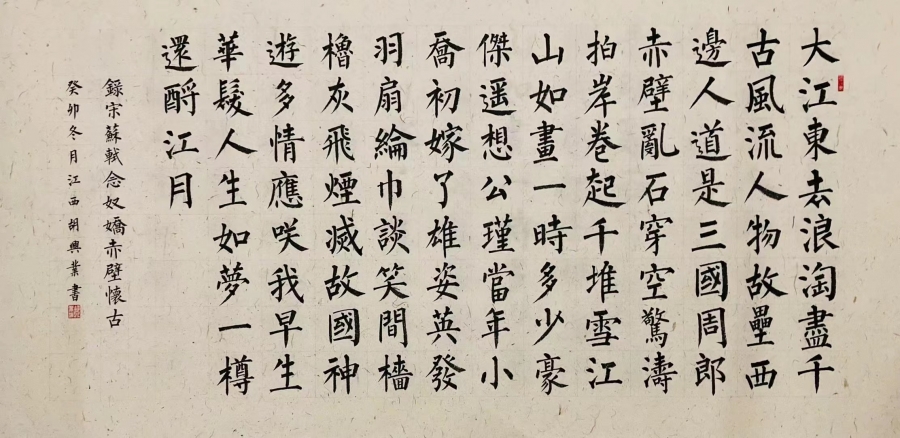 大江東去浪淘盡千
古風流人物故壘西
邊人道是三國周郎
赤壁亂石穿空驚濤
拍岸卷起千堆雪江
山如畫一時多少豪
傑遥想公瑾當年小
喬初嫁了雄姿英發
羽扇綸巾談笑間檣
櫓灰飛煙滅故國神
遊多情應咲我早生
華髮人生如夢一樽
還酹江月
錄宋蘇軾念奴嬌赤壁懷古
癸卯冬月江西胡興業書